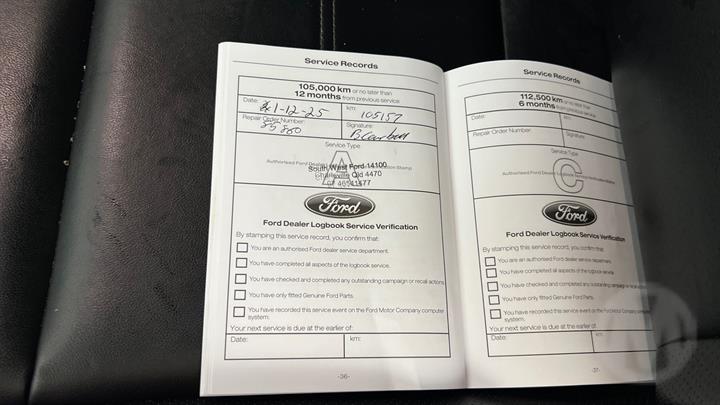 Service Records
105,000 km or no later than
12 months from previous service
Date: 1-12-25
km: 105157
Repair Order Number:
Signature:
Service Type
A
Authorised Ford Dealer
South West Ford 14100
Charleville Qld 4470
Ford
Ford Dealer Logbook Service Verification
By stamping this service record, you confirm that:
You are an authorised Ford dealer service department.
You have completed all aspects of the logbook service.
You have checked and completed any outstanding campaign or recall actions.
You have only fitted Genuine Ford Parts.
You have recorded this service event on the Ford Motor Company computer
system.
Your next service is due at the earlier of:
Date:
km:
-36-
Service Records
112,500 km or no later than
6 months from previous service
Date:
km:
Repair Order Number:
Signature:
Service Type
C
Ford
Ford Dealer Logbook Service Verification
By stamping this service record, you confirm that:
You are an authorised Ford dealer service department.
You have completed all aspects of the logbook service.
You have checked and completed any outstanding campaign or recall actions
You have only fitted Genuine Ford Parts.
You have recorded this service event on the Ford Motor Company computer
system.
Your next service is due at the earlier of:
Date:
km:
-37-